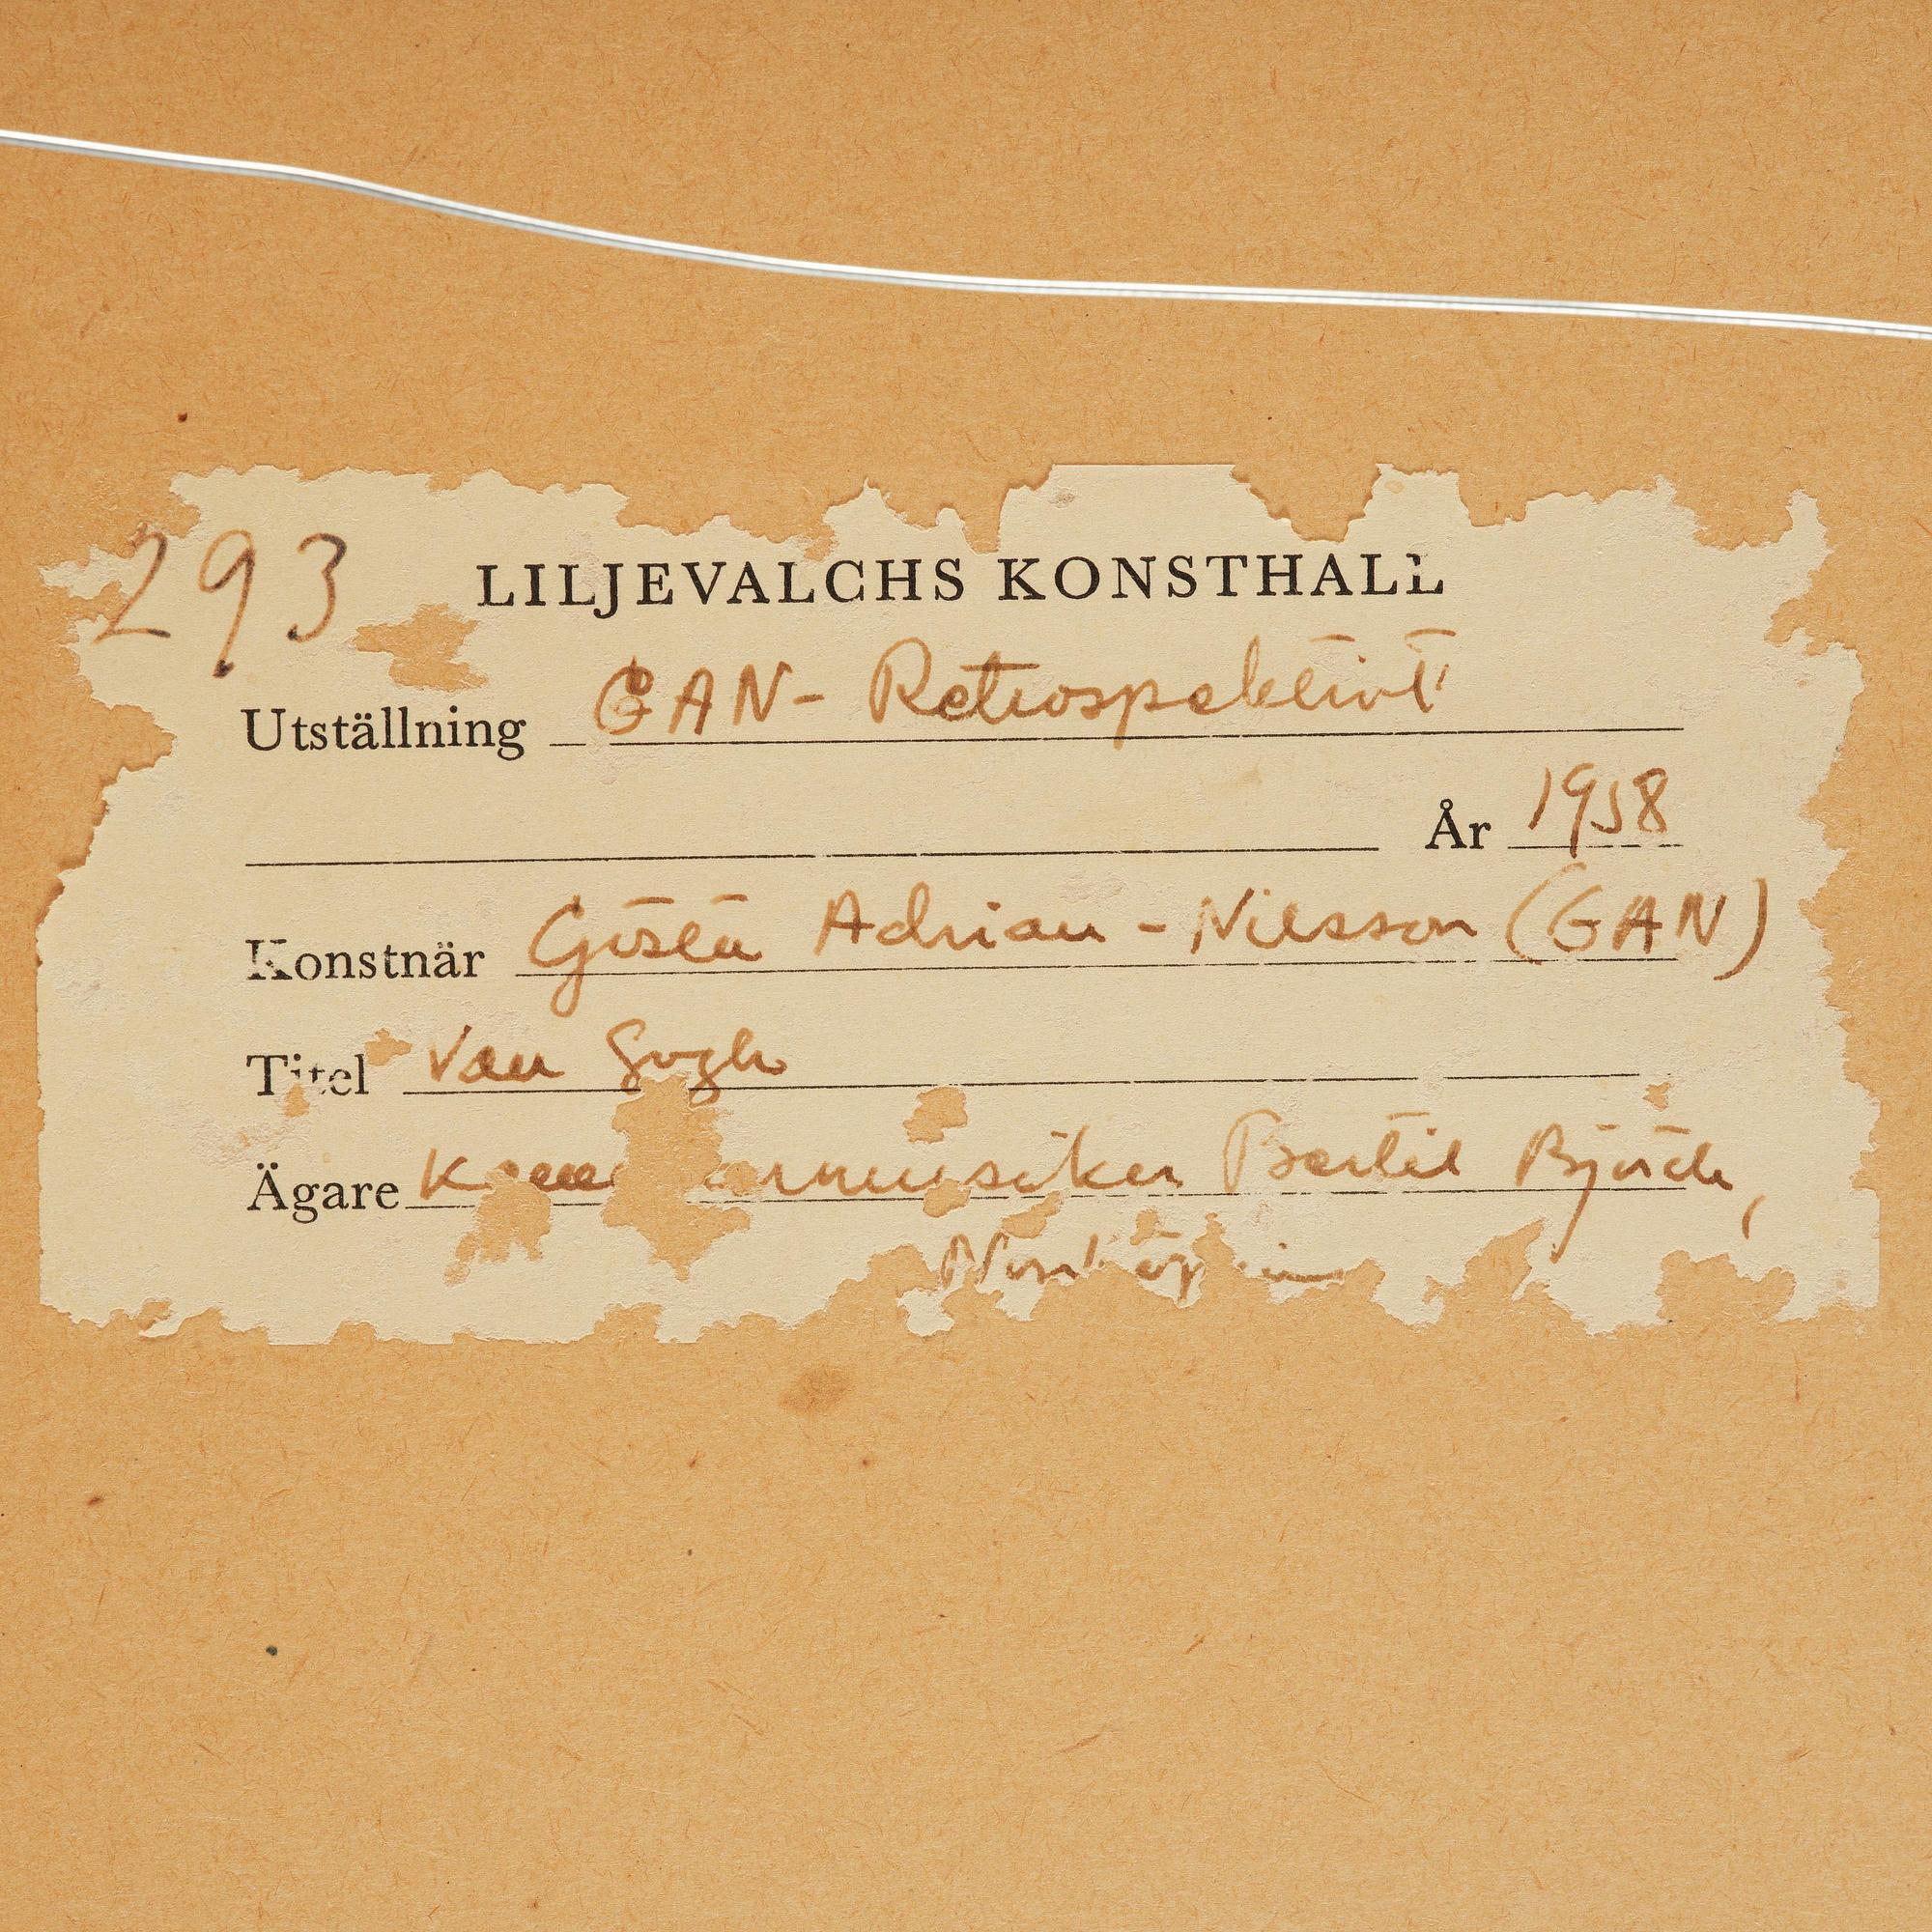 293 LILJEVALCHS KONSTHALL
Utställning GAN- Retrospektivt
År 1958
Konstnär Gösta Adrian-Nilsson (GAN)
Titel Van Gogh
Ägare Bertil